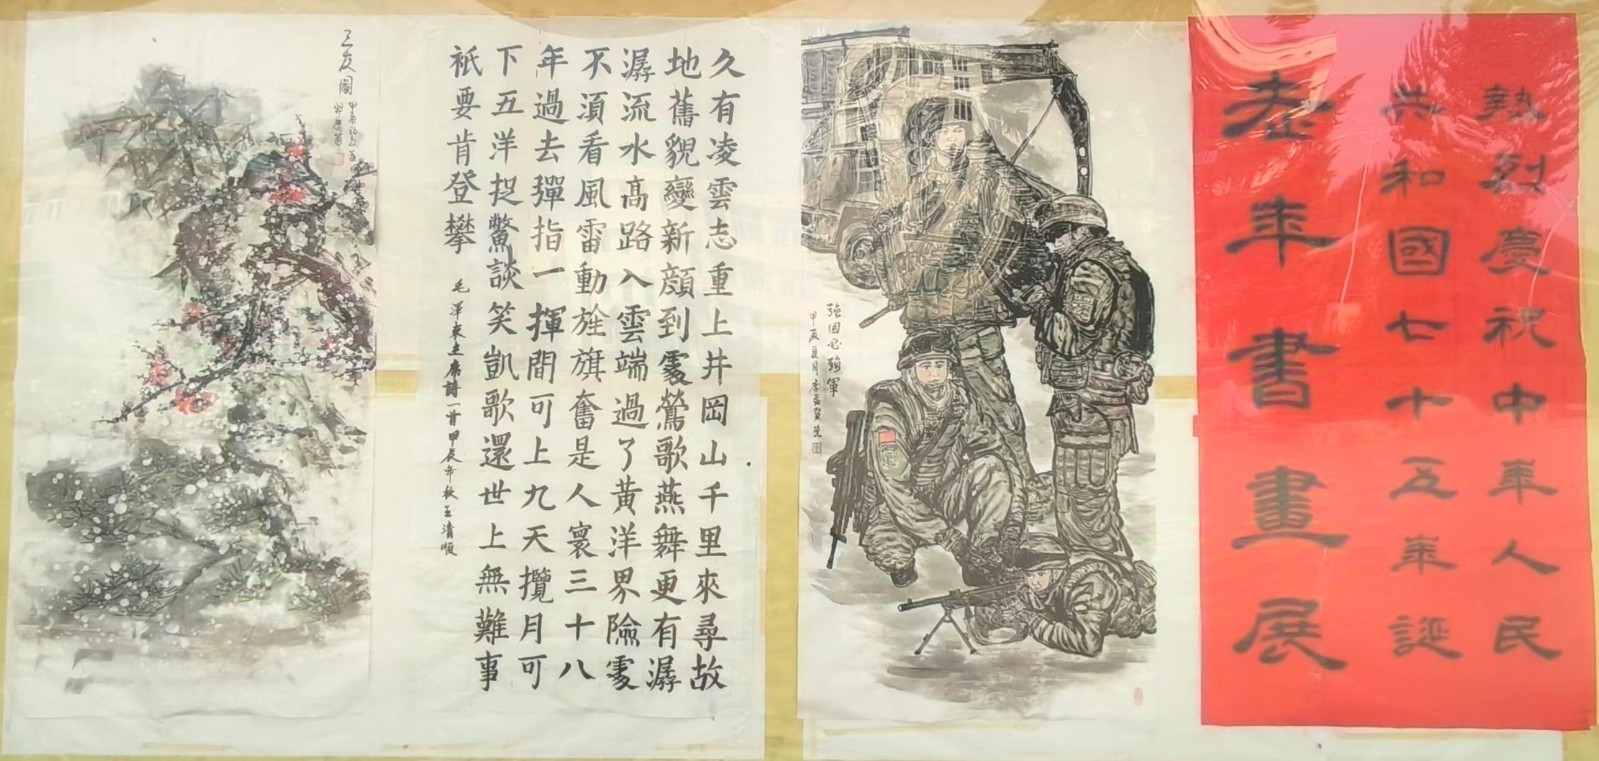 熱烈慶祝中華人民
共和國七十五華誕
老年書畫展
強国必強軍
甲辰夏月李
久有凌雲志重上井岡山千里來尋故
地舊貌變新顔到處鶯歌燕舞更有潺
潺流水高路入雲端過了黃洋界險處
不須看風雷動旌旗奮是人寰三十八
年過去彈指一揮間可上九天攬月可
下五洋捉鱉談笑凱歌還世上無難事
衹要肯登攀
毛澤東主席詩一首甲辰年秋王清順
三友圖